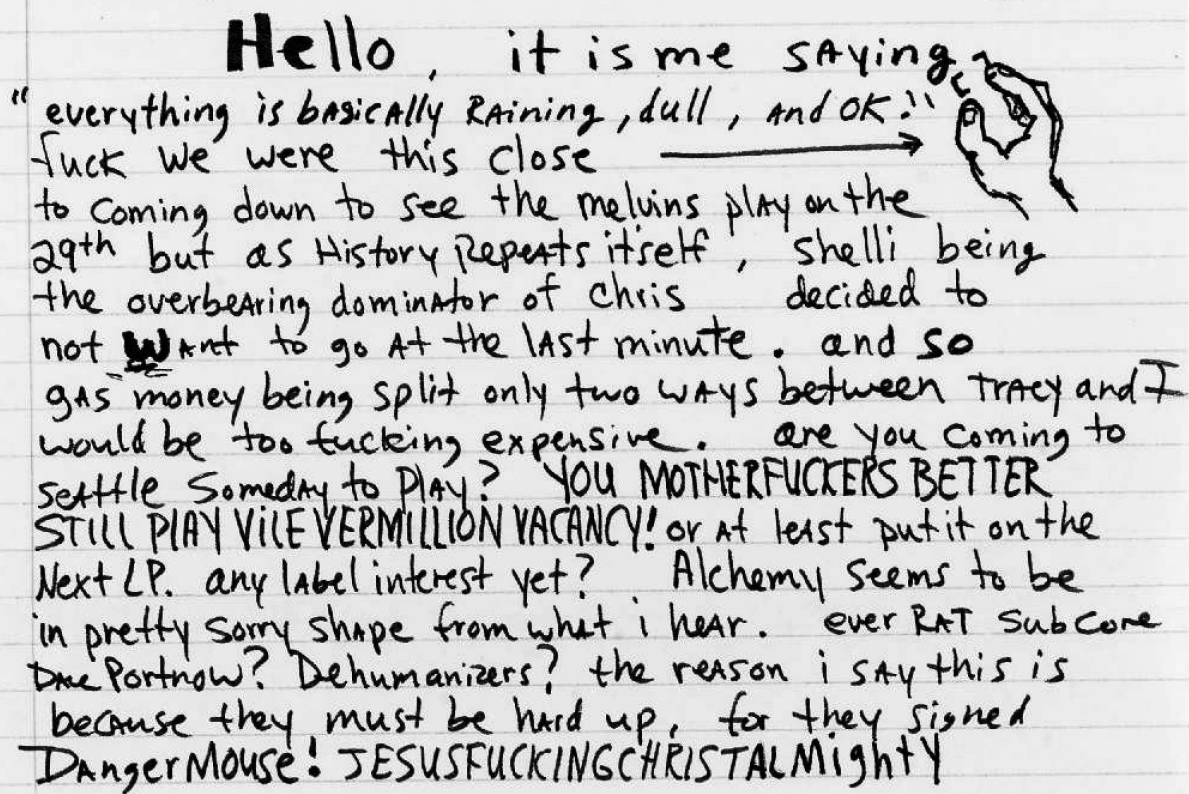 Hello, it is me saying,
"everything is basically Raining, dull, and OK."
fuck we were this close
to coming down to see the melvins play on the
29th but as History Repeats itself, Shelli being
the overbearing dominator of Chris decided to
not want to go at the last minute. and so
gas money being split only two ways between Tracy and I
would be too fucking expensive. are you coming to
seattle Someday to Play? YOU MOTHERFUCKERS BETTER
STILL PLAY VILE VERMILLION VACANCY! or at least put it on the
Next LP. any label interest yet? Alchemy seems to be
in pretty sorry shape from what i hear. ever RAT Subcore
Portnow? Dehumanizers? the reason i say this is
because they must be hard up, for they signed
Danger Mouse! JESUSFUCKINGCHRISTALMighty